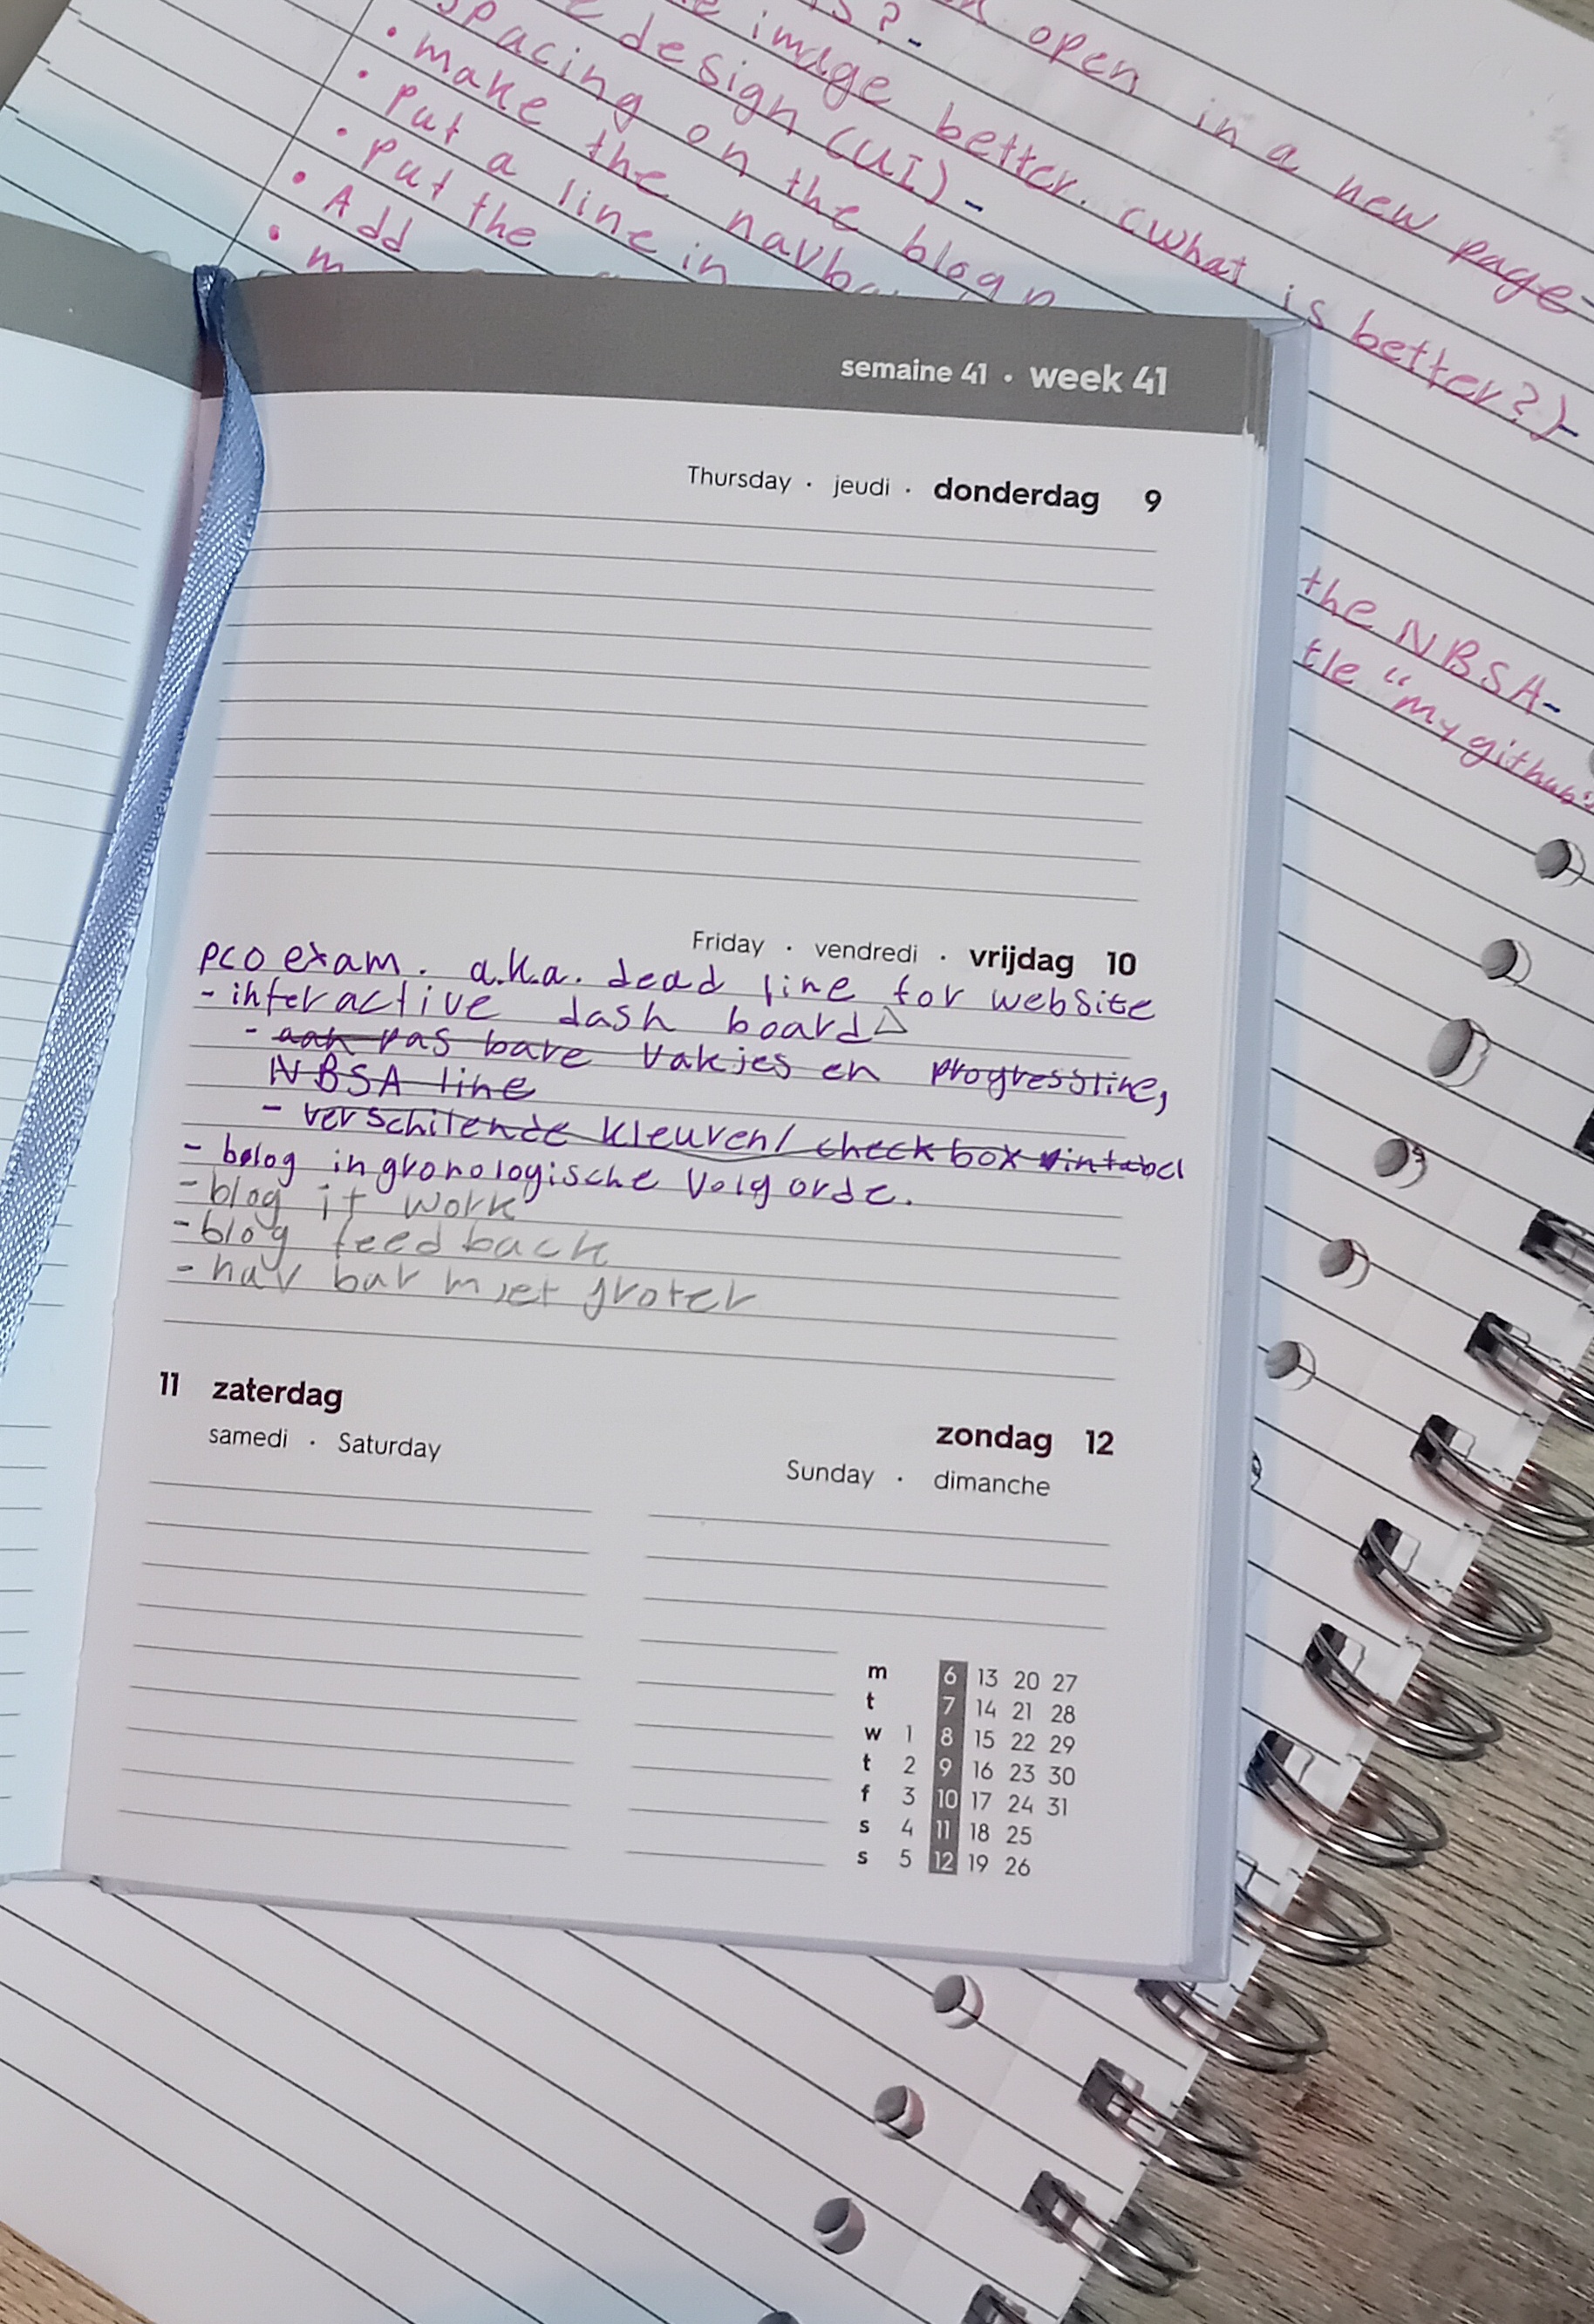 s?-
open in a new page
image better. (what is better?)-
design (UI)-
spacing on the blog
• make the navba
• put a line in
• put the
• Add
• m
the NBSA-
tle "my github"
semaine 41 · week 41
Thursday · jeudi · donderdag 9
Friday · vendredi · vrijdag 10
pco exam. a.k.a. dead line for website
- interactive dash board
- aan pas bare vakjes en progressline,
NBSA line
- verschilende kleuren/ checkbox
- bolog in gronologische volg orde.
- blog it work
- blog feed back
- nav bar moet groter
11 zaterdag
samedi · Saturday
zondag 12
Sunday · dimanche
m 6 13 20 27
t 7 14 21 28
w 1 8 15 22 29
t 2 9 16 23 30
f 3 10 17 24 31
s 4 11 18 25
s 5 12 19 26